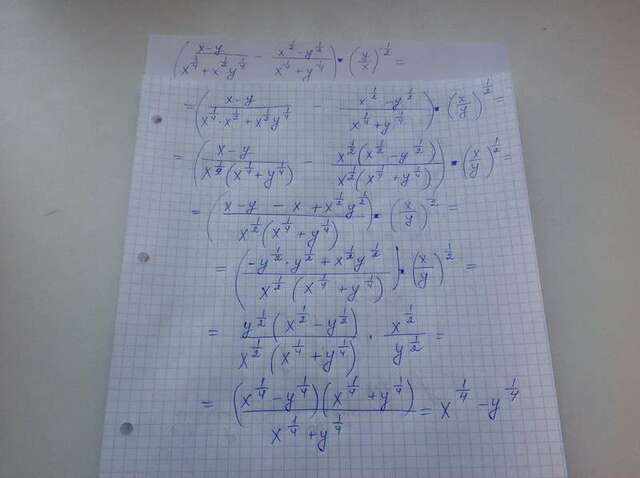 (x-y / (x^(3/4) + x^(1/2)y^(1/4)) - (x^(1/2) - y^(1/2)) / (x^(1/4) + y^(1/4))) · (y/x)^(-1/2) =
= ((x-y) / (x^(1/4) · x^(1/2) + x^(1/2)y^(1/4)) - (x^(1/2) - y^(1/2)) / (x^(1/4) + y^(1/4))) · (x/y)^(1/2) =
= ((x-y) / (x^(1/2)(x^(1/4) + y^(1/4))) - x^(1/2)(x^(1/2) - y^(1/2)) / (x^(1/2)(x^(1/4) + y^(1/4)))) · (x/y)^(1/2) =
= ((x-y - x + x^(1/2)y^(1/2)) / (x^(1/2)(x^(1/4) + y^(1/4)))) · (x/y)^(1/2) =
= ((-y^(1/2) · y^(1/2) + x^(1/2)y^(1/2)) / (x^(1/2)(x^(1/4) + y^(1/4)))) · (x/y)^(1/2) =
= y^(1/2)(x^(1/2) - y^(1/2)) / (x^(1/2)(x^(1/4) + y^(1/4))) · x^(1/2) / y^(1/2) =
= (x^(1/4) - y^(1/4))(x^(1/4) + y^(1/4)) / (x^(1/4) + y^(1/4)) = x^(1/4) - y^(1/4)